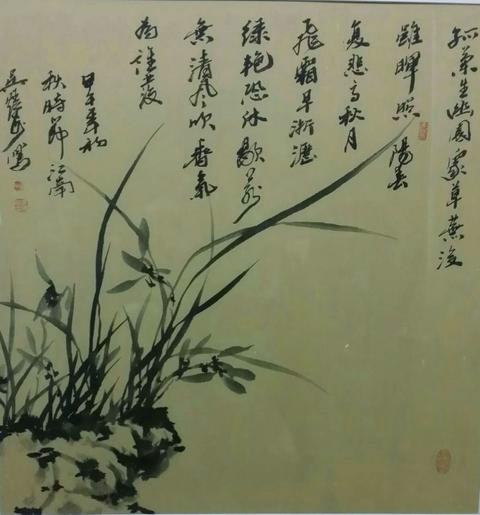 孤蘭生幽園眾草蕪沒
雖暉照陽春
复悲高秋月
飛霜早淅瀝
綠艷恐休歇若
無清風吹香氣
為誰發
甲午年初
秋時節江南